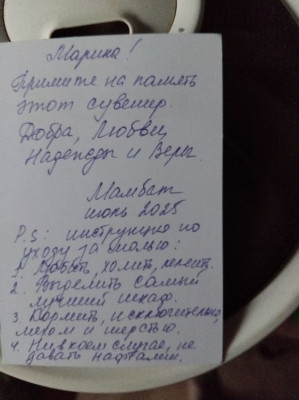 Марина!
Примите на память
этот сувенир.
Добра, Любви,
Надежды и Веры.
Мамбат
июнь 2025
P.S: инструкция по
уходу за молью:
1. Любить, холить, лелеять.
2. Выделить самый
лучший шкаф.
3. Кормить исключительно,
мехом и шерстью.
4. Ни в коем случае, не
давать нафталин.